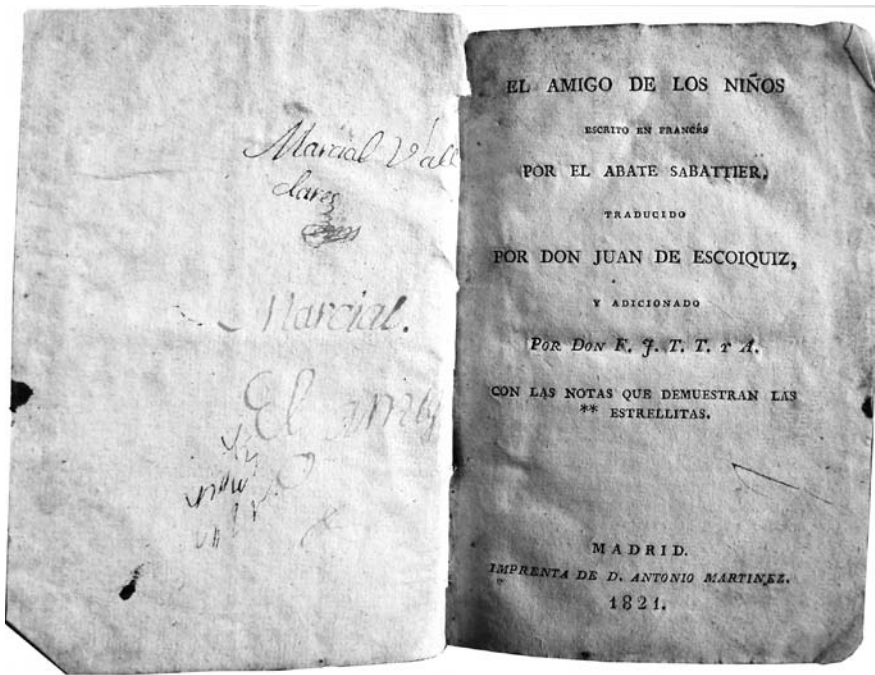 Marcial Vall
dares
Marcial.
El amig
EL AMIGO DE LOS NIÑOS
ESCRITO EN FRANCÉS
POR EL ABATE SABATTIER,
TRADUCIDO
POR DON JUAN DE ESCOIQUIZ,
Y ADICIONADO
POR DON F. J. T. T. Y A.
CON LAS NOTAS QUE DEMUESTRAN LAS
** ESTRELLITAS.
MADRID.
IMPRENTA DE D. ANTONIO MARTINEZ.
1821.